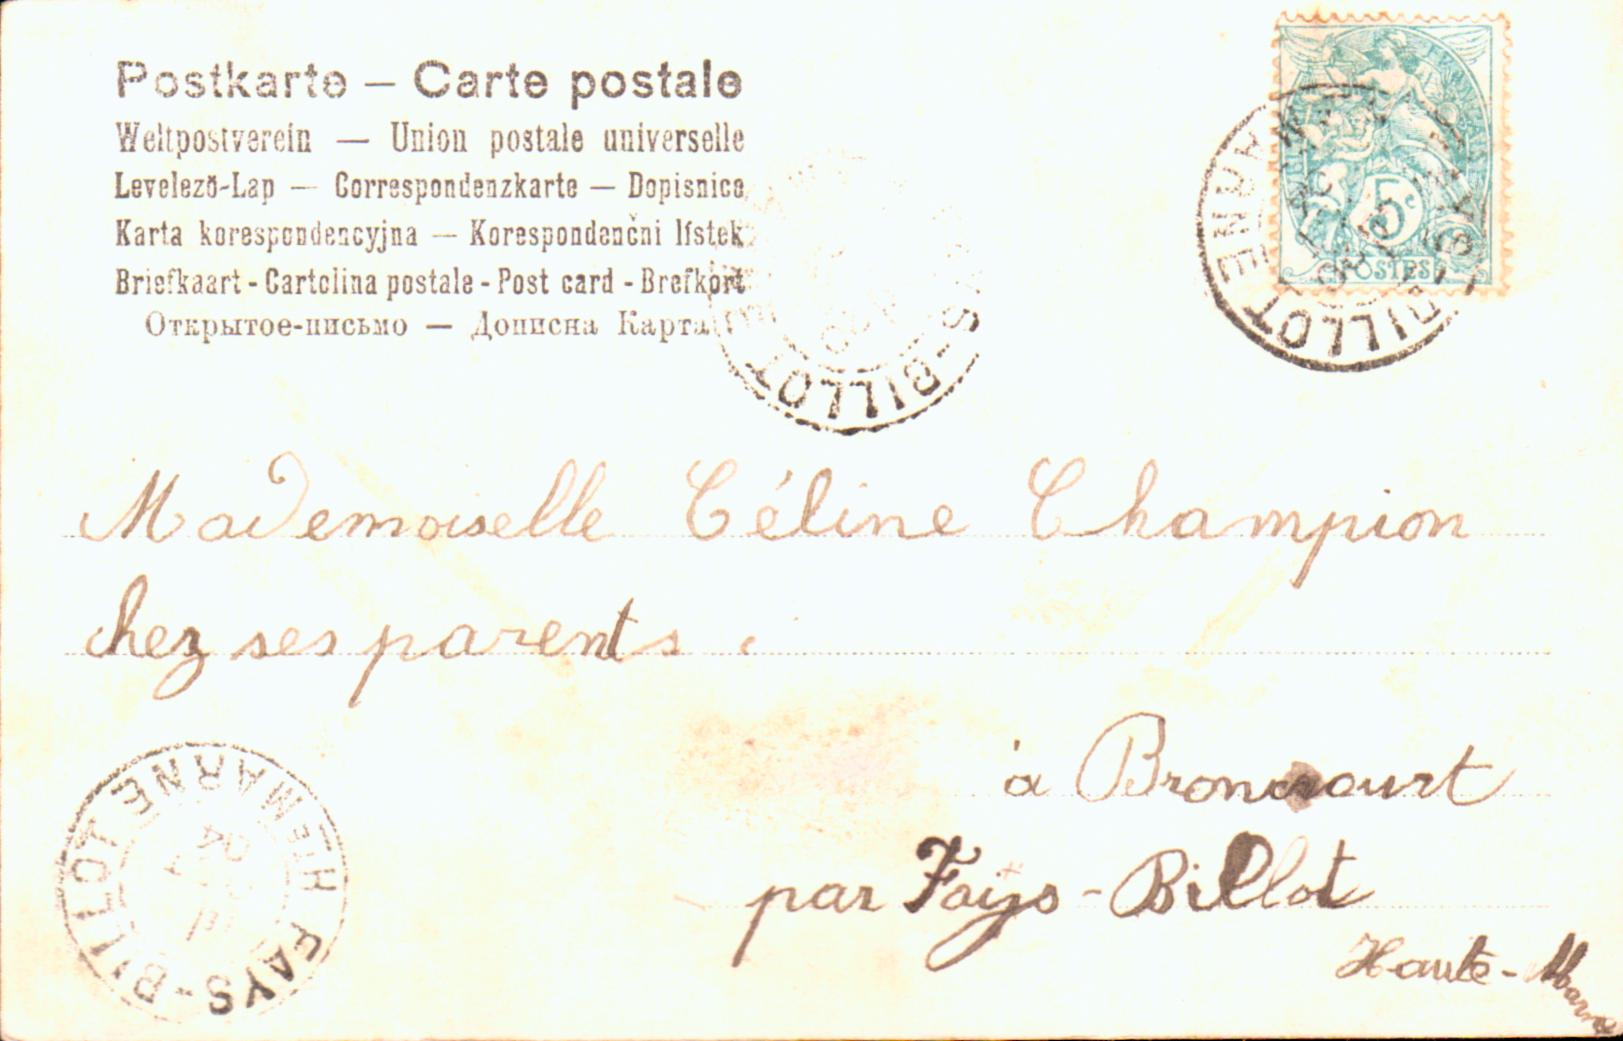 Postkarte – Carte postale
Weltpostverein — Union postale universelle
Levelező-Lap — Correspondenzkarte — Dopisnice
Karta korespondencyjna — Korespondenční lístek
Briefkaart - Cartolina postale - Post card - Brefkort
Открытое-письмо — Дописна Карта
5c
POSTES
BILLOT
MARNE
S-BILLOT
Mademoiselle Céline Champion
chez ses parents.
à Broncourt
par Fays-Billot
Haute-Marne
FAYS-BILLOT
HTE MARNE
04